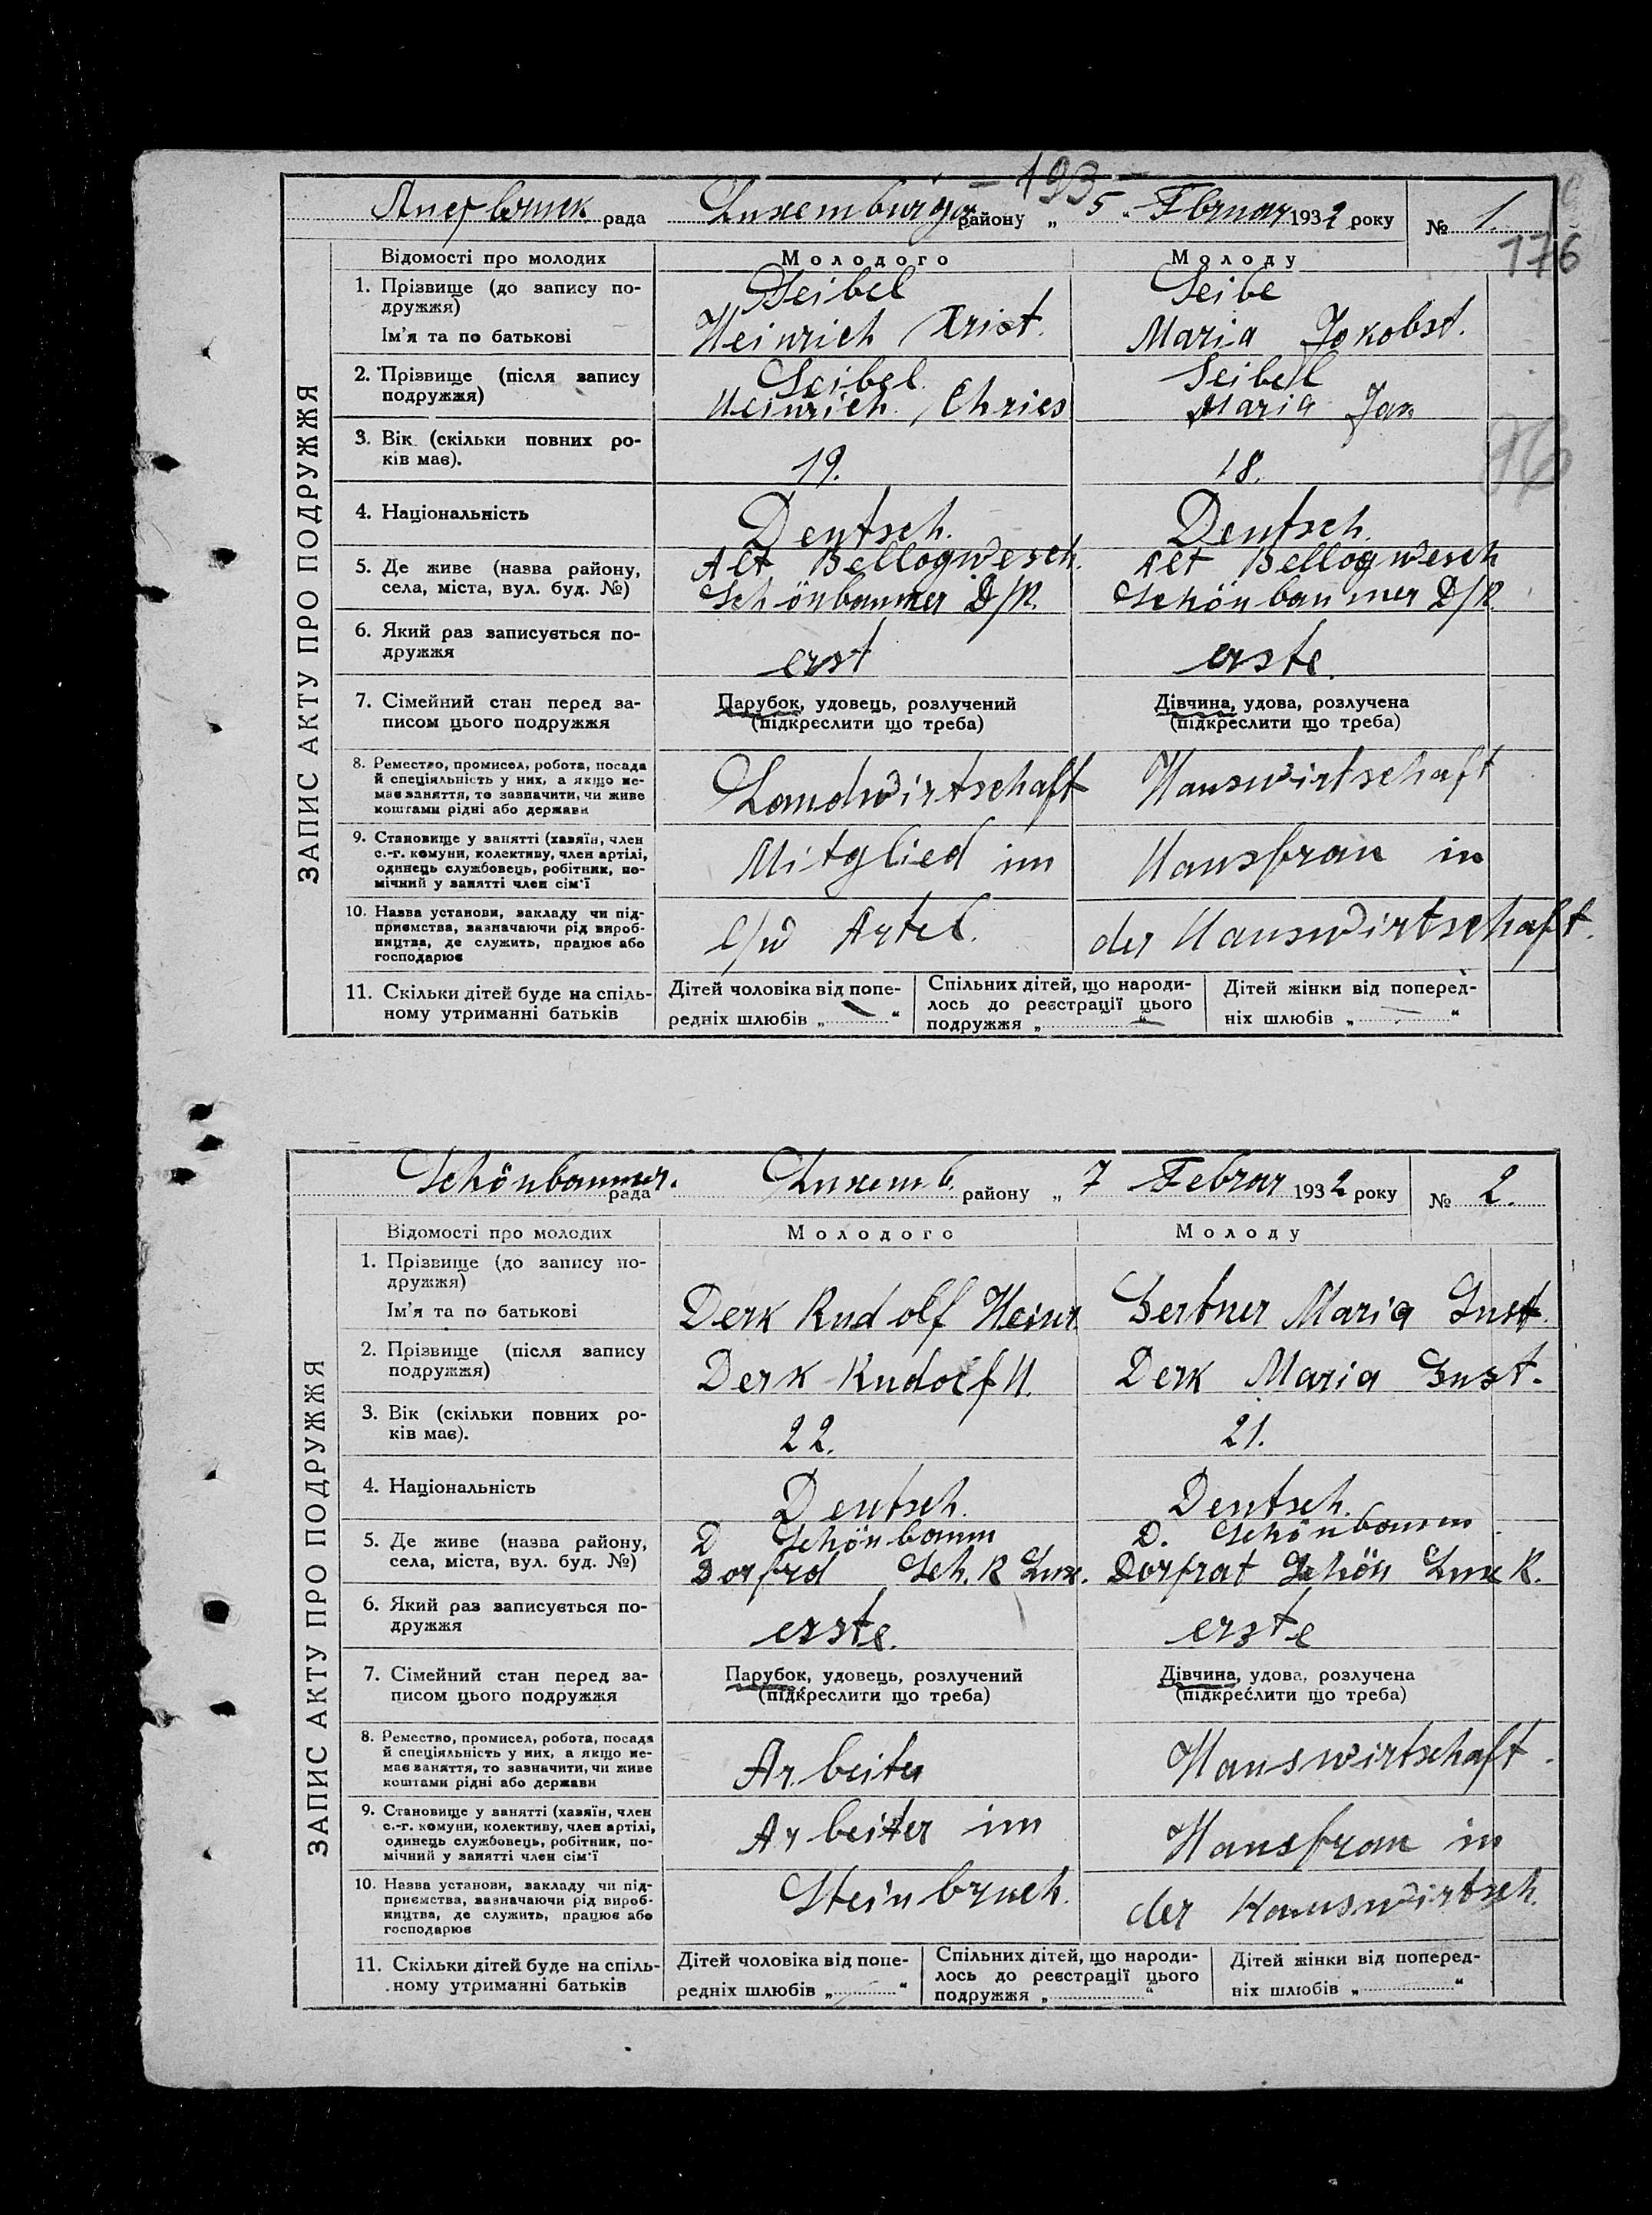 - 193 -
рада Luxemburger району „ 5 „ Februar 1932 року № 1.
176
Відомості про молодих Молодого Молоду
1. Прізвище (до запису по- Seibel Seibe
дружжя)
Ім’я та по батькові Heinrich Krist. Maria Jokobst.
2. Прізвище (після запису Seibel Seibel
подружжя) Heinrich Chries Maria Jak
3. Вік (скільки повних ро-
ків має). 19. 18.
96
4. Національність Deutsch. Deutsch.
5. Де живе (назва району, Alt Bellogwesch. Alt Bellogwesch
села, міста, вул. буд. №) Schönbaumer D/R. Schönbaumer D/R
6. Який раз записується по-
дружжя erst erste.
7. Сімейний стан перед за- Парубок, удовець, розлучений Дівчина, удова, розлучена
писом цього подружжя (підкреслити що треба) (підкреслити що треба)
8. Ремество, промисел, робота, посада
й спеціяльність у них, а якщо не-
має заняття, то зазначити, чи живе Landwirtschaft Hauswirtschaft
коштами рідні або держави
9. Становище у занятті (хазяїн, член
с.-г. комуни, колективу, член артілі,
одинець службовець, робітник, по- Mitglied im Hausfrau in
мічний у занятті член сім’ї
10. Назва установи, закладу чи під-
приємства, зазначаючи рід вироб-
ництва, де служить, працює або Artel. der Hauswirtschaft.
господарює
11. Скільки дітей буде на спіль- Дітей чоловіка від попе- Спільних дітей, що народи- Дітей жінки від поперед-
ному утриманні батьків редніх шлюбів „ — “ лось до реєстрації цього ніх шлюбів „ — “
подружжя „ — “
ЗАПИС АКТУ ПРО ПОДРУЖЖЯ
Schönbaumer. рада Luxemb. району „ 7 Februar 1932 року № 2.
Відомості про молодих Молодого Молоду
1. Прізвище (до запису по-
дружжя)
Ім’я та по батькові Derk Rudolf Heinr Gertner Maria Gust.
2. Прізвище (після запису
подружжя) Derk Rudolf H. Derk Maria Gust.
3. Вік (скільки повних ро-
ків має). 22. 21.
4. Національність Deutsch. Deutsch.
5. Де живе (назва району, D Schönbaum D. Schönbaum
села, міста, вул. буд. №) Dorfrd Sch. R Lux. Dorfrat Schön Lux R.
6. Який раз записується по-
дружжя erste. erste
7. Сімейний стан перед за- Парубок, удовець, розлучений Дівчина, удова, розлучена
писом цього подружжя (підкреслити що треба) (підкреслити що треба)
8. Ремество, промисел, робота, посада
й спеціяльність у них, а якщо не-
має заняття, то зазначити, чи живе Arbeiter Hauswirtschaft
коштами рідні або держави
9. Становище у занятті (хазяїн, член
с.-г. комуни, колективу, член артілі,
одинець службовець, робітник, по- Arbeiter im Hausfrau in
мічний у занятті член сім’ї
10. Назва установи, закладу чи під-
приємства, зазначаючи рід вироб-
ництва, де служить, працює або Steinbruch. der Hauswirtsch.
господарює
11. Скільки дітей буде на спіль- Дітей чоловіка від попе- Спільних дітей, що народи- Дітей жінки від поперед-
ному утриманні батьків редніх шлюбів „ “ лось до реєстрації цього ніх шлюбів „ “
подружжя „ “
ЗАПИС АКТУ ПРО ПОДРУЖЖЯ